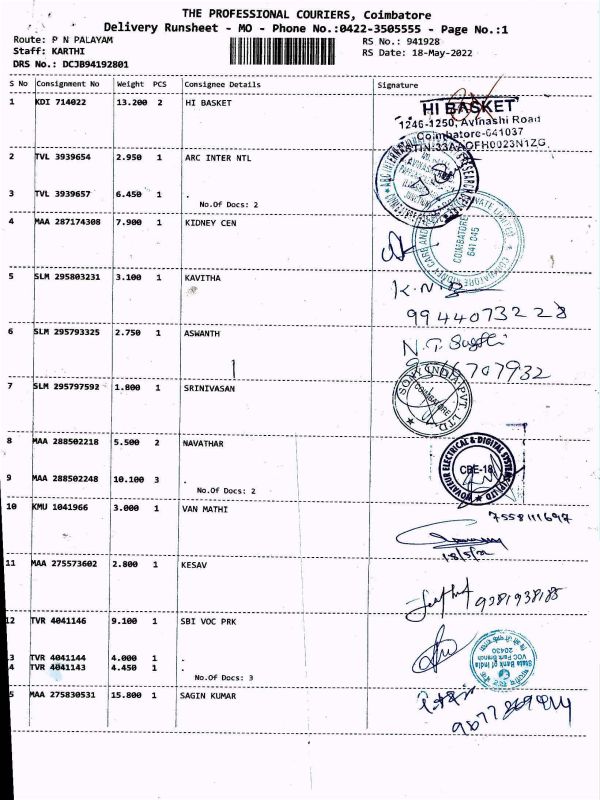 THE PROFESSIONAL COURIERS, Coimbatore
Delivery Runsheet - MO - Phone No.:0422-3505555 - Page No.:1
Route: P N PALAYAM
RS No.: 941928
Staff: KARTHI
RS Date: 18-May-2022
DRS No.: DCJB94192801
S No Consignment No Weight PCS Consignee Details Signature
1 KDI 714022 13.200 2 HI BASKET
HI BASKET
1246-1250, Avinashi Road
Coimbatore-641037
2 TVL 3939654 2.950 1 ARC INTER NTL
3 TVL 3939657 6.450 1 .
No.Of Docs: 2
4 MAA 287174308 7.900 1 KIDNEY CEN
COIMBATORE
641 045
5 SLM 295803231 3.100 1 KAVITHA
9944073228
6 SLM 295793325 2.750 1 ASWANTH
7 SLM 295797592 1.800 1 SRINIVASAN
SONY INDIA PVT. LTD.
COIMBATORE
8 MAA 288502218 5.500 2 NAVATHAR
9 MAA 288502248 10.100 3 .
No.Of Docs: 2
NOVATEUR ELECTRICAL & DIGITAL SYSTEMS (P) LTD
CBE-18
10 KMU 1041966 3.000 1 VAN MATHI
7558111697
18/5/22
11 MAA 275573602 2.800 1 KESAV
12 TVR 4041146 9.100 1 SBI VOC PRK
3 TVR 4041144 4.000 1 .
4 TVR 4041143 4.450 1 .
No.Of Docs: 3
State Bank of India
VOC Park Branch
20430
5 MAA 275830531 15.800 1 SAGIN KUMAR